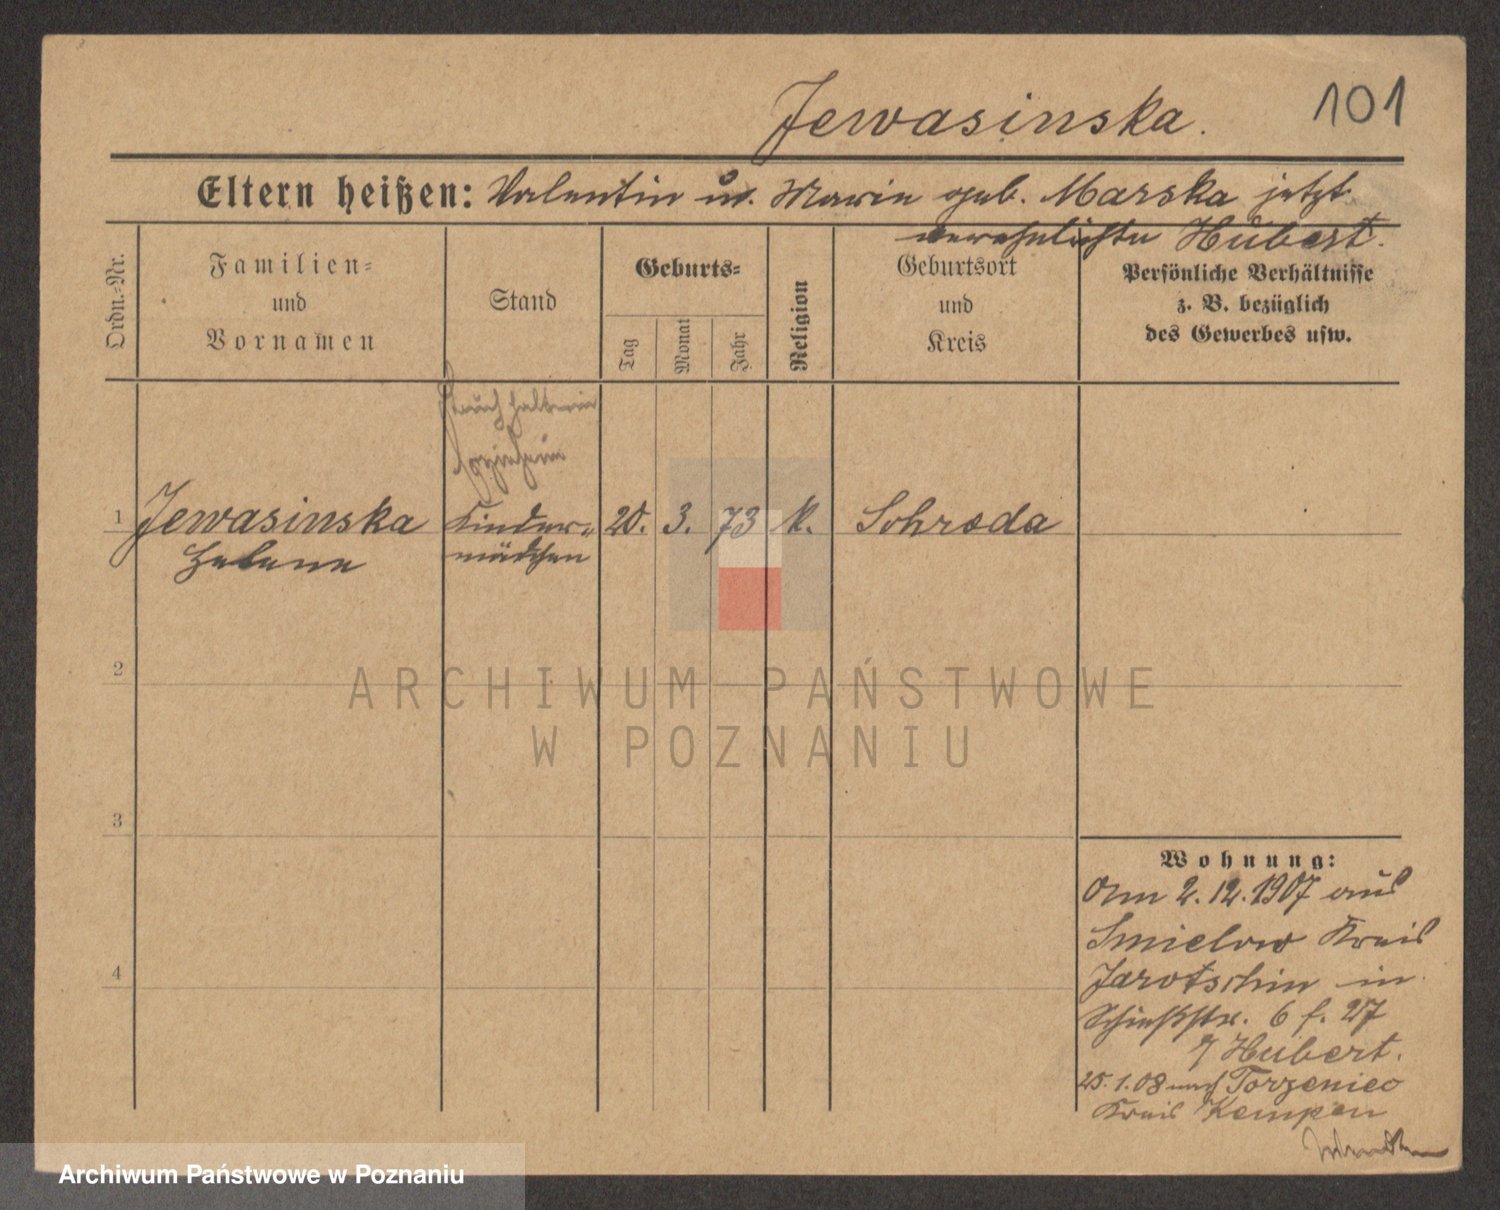 Jewasinska.
101
Eltern heißen: Valentin u. Marie geb. Marska jetzt
verehelichte Hubert.
Ordn.-Nr.
Familien-
und
Vornamen
Stand
Geburts-
Tag
Monat
Jahr
Religion
Geburtsort
und
Kreis
Persönliche Verhältnisse
z. B. bezüglich
des Gewerbes usw.
1 Jewasinska Kinder- 20. 3. 73 k. Schroda
Helene mädchen
2
ARCHIWUM PAŃSTWOWE
W POZNANIU
3
4
Wohnung:
Am 2. 12. 1907 aus
Smielow Kreis
Jarotschin in
Schießstr. 6 f. 27
Hubert.
25. 1. 08 nach Torzeniec
Kreis Kempen
Archiwum Państwowe w Poznaniu